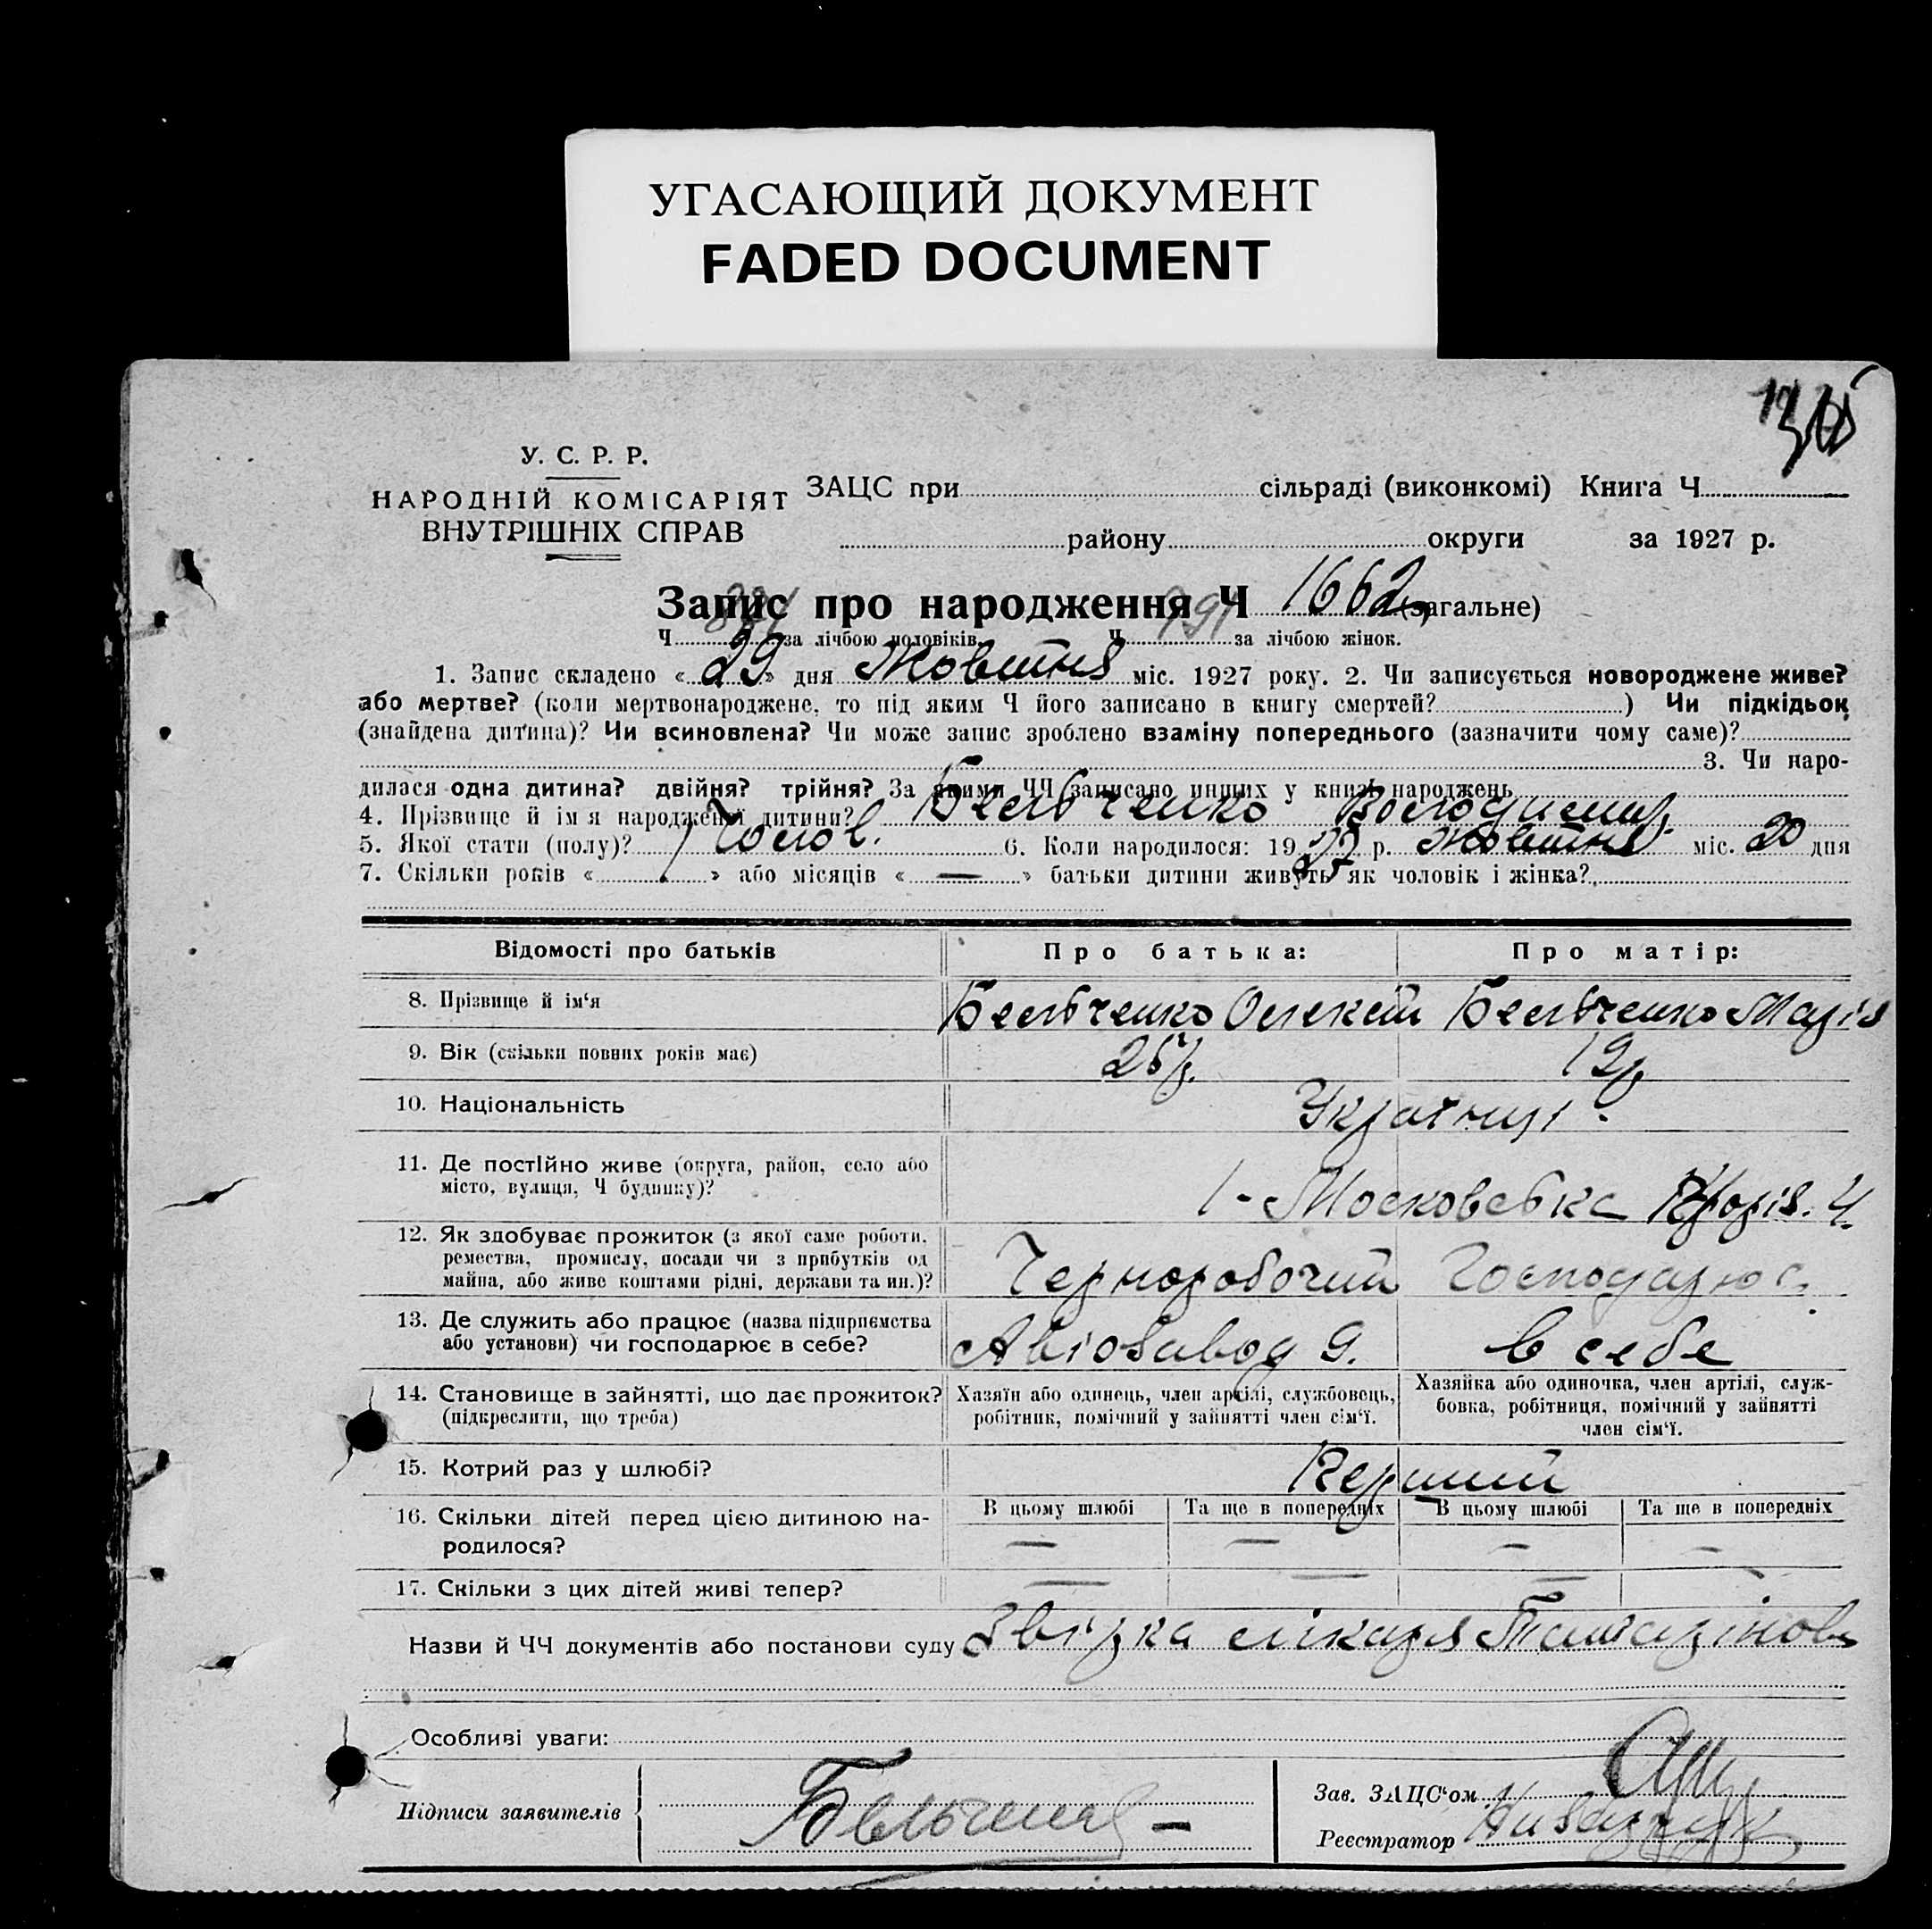 УГАСАЮЩИЙ ДОКУМЕНТ
FADED DOCUMENT
У. С. Р. Р.
НАРОДНІЙ КОМІСАРІЯТ
ВНУТРІШНІХ СПРАВ
ЗАЦС при сільраді (виконкомі) Книга Ч
району округи за 1927 р.
Запис про народження Ч 1662 (загальне)
Ч за лічбою чоловіків Ч 791 за лічбою жінок.
1. Запис складено « 29 » дня Жовтня міс. 1927 року. 2. Чи записується новороджене живе?
або мертве? (коли мертвонароджене, то під яким Ч його записано в книгу смертей? ) Чи підкідьок
(знайдена дитина)? Чи всиновлена? Чи може запис зроблено взаміну попереднього (зазначити чому саме)?
3. Чи наро-
дилася одна дитина? двійня? трійня? За якими ЧЧ записано инших у книзі народжень
4. Прізвище й ім'я народженої дитини? Бельченко Володимир.
5. Якої стати (полу)? Чолов. 6. Коли народилося: 1927 р. Жовтня міс. 20 дня
7. Скільки років « 1 » або місяців « — » батьки дитини живуть як чоловік і жінка?
Відомості про батьків Про батька: Про матір:
8. Прізвище й ім'я Бельченко Олексій Бельченко Марія
9. Вік (скільки повних років має) 19р
10. Національність Українці.
11. Де постійно живе (округа, район, село або
місто, вулиця, Ч будинку)? 1-Московська
12. Як здобуває прожиток (з якої саме роботи,
ремества, промислу, посади чи з прибутків од
майна, або живе коштами рідні, держави та ин.)? Черноробочий Господарює
13. Де служить або працює (назва підприємства
або установи) чи господарює в себе? Авіозавод 9. в себе
14. Становище в зайнятті, що дає прожиток?
(підкреслити, що треба)
Хазяїн або одинець, член артілі, службовець,
робітник, помічний у зайнятті член сім'ї.
Хазяйка або одиночка, член артілі, служ-
бовка, робітниця, помічний у зайнятті
член сім'ї.
15. Котрий раз у шлюбі? Перший
16. Скільки дітей перед цією дитиною на-
родилося?
В цьому шлюбі Та ще в попередніх В цьому шлюбі Та ще в попередніх
— — — —
17. Скільки з цих дітей живі тепер? — — — —
Назви й ЧЧ документів або постанови суду лікаря
Особливі уваги:
Підписи заявителів
Зав. ЗАЦС'ом
Реєстратор